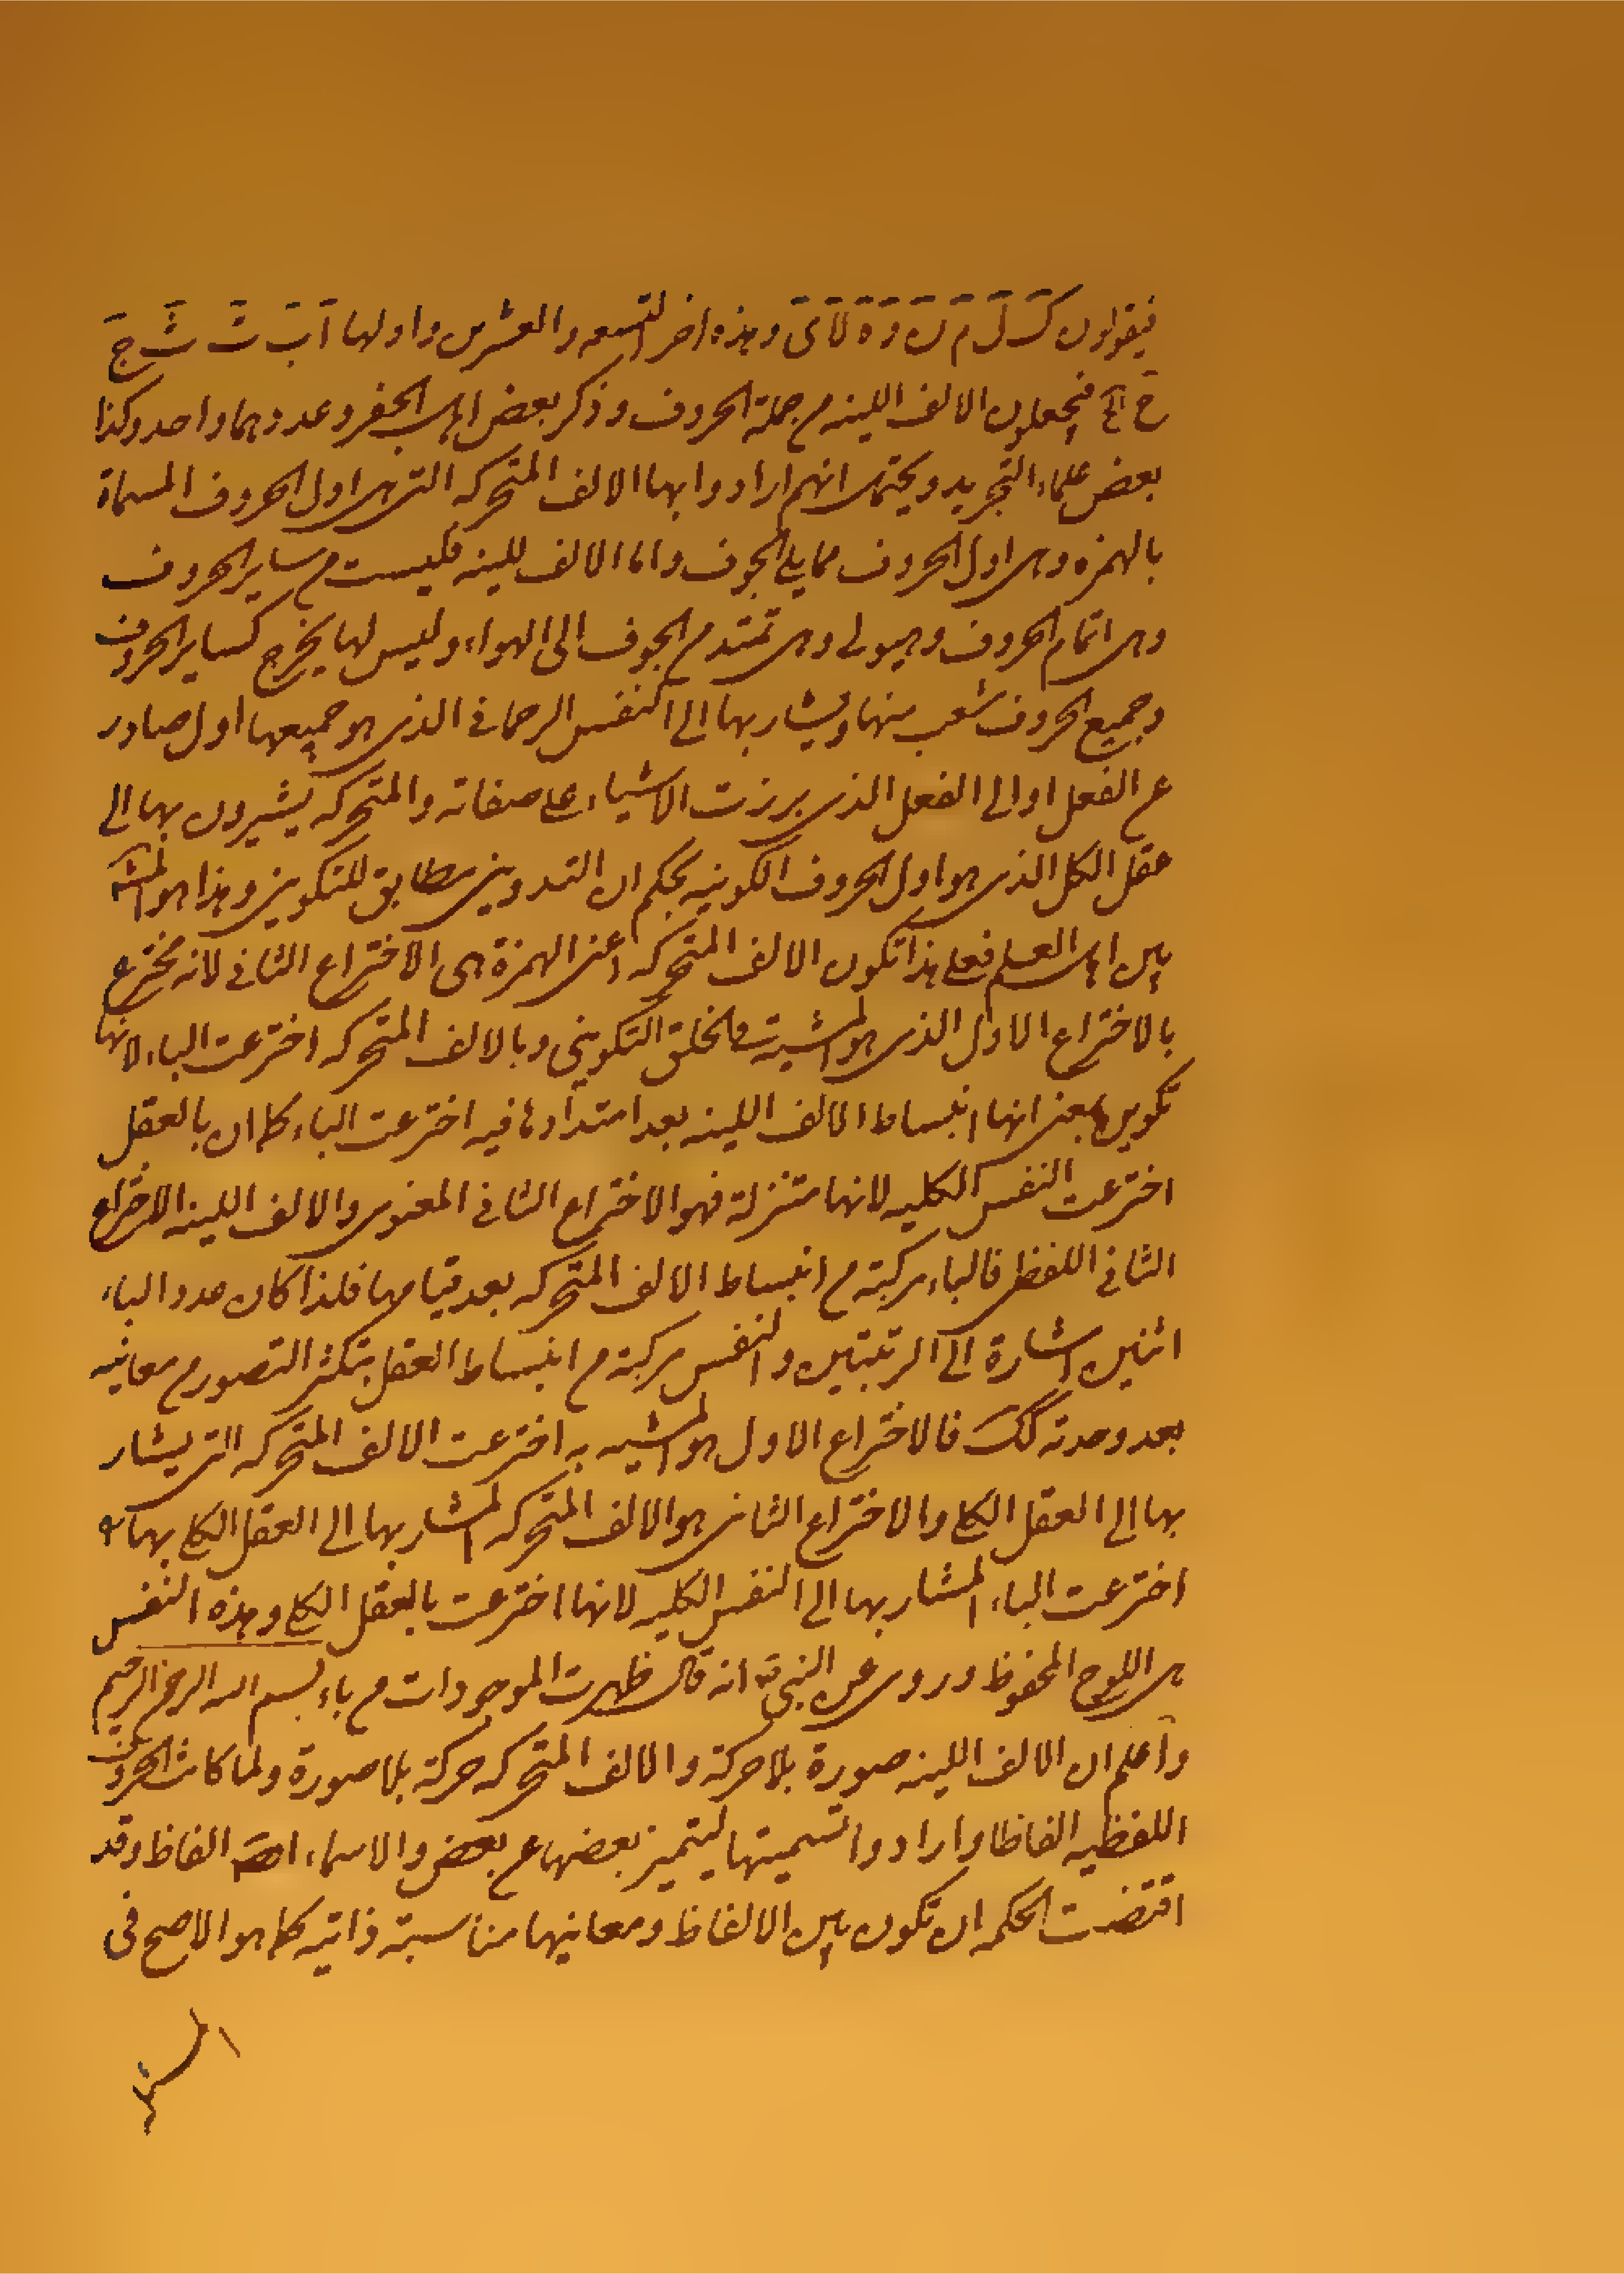 فيقولون كَ لَ مَ نَ وَ هَ لَا ىَ وهذه اخر التسعه والعشرين واولها اَ بَ تَ ثَ جَ
حَ الخ فيجعلون الالف اللينه من جملة الحروف وذكر بعض اهل الجفر وعددهما واحد وكذا
بعض علماء التجويد ويحتمل انهم ارادوا بها الالف المتحركه التي هي اول الحروف المسماة
بالهمزه وهي اول الحروف مما يلي الجوف واما الالف اللينه فليست من ساير الحروف
وهي اتمام الحروف وهيولى وهي تمتد من الجوف الى الهواء وليس لها مخرج كساير الحروف
وجميع الحروف شعب منها ويشار بها الى النفس الرحماني الذي هو جميعها اول صادر
عن الفعل او الى الفعل الذي برزت الاشياء على صفاته والمتحركه يشيرون بها الى
عقل الكل الذي هو اول الحروف الكونيه بحكم ان التدويني مطابق للتكويني وهذا هو المش
بين اهل العلم فعلى هذا تكون الالف المتحركه اعني الهمزة هي الاختراع الثاني لانه مخترع
بالاختراع الاول الذي هو المشيت في الخلق التكويني وبالالف المتحركه اخترعت الباء لانها
تكويرها بمعنى انها انبساط الالف اللينه بعد امتدادها فيه اخترعت الباء كما ان بالعقل
اخترعت النفس الكليه لانها متنزلة فهو الاختراع الثاني المعنوي والالف اللينه الاختراع
الثاني اللفظي فالباء مركبة من انبساط الالف المتحركه بعد قيامها فلذا كان عدد الباء
اثنين اشارة الى الرتبتين والنفس مركبة من انبساط العقل بتكثر التصور من معانيه
بعد وحدته كك فالاختراع الاول هو المشيه به اخترعت الالف المتحركه التي يشار
بها الى العقل الكلي والاختراع الثاني هو الالف المتحركه المشار بها الى العقل الكلي بها
اخترعت الباء المشار بها الى النفس الكليه لانها اخترعت بالعقل الكلي وهذه النفس
هي اللوح المحفوظ وروي عن النبي ص انه قال ظهرت الموجودات من باء بسم الله الرحمن الرحيم
واعلم ان الالف اللينه صورة بلا حركة والالف المتحركه حركة بلا صورة ولما كانت الحروف
اللفظيه الفاظا وارادوا تسميتها ليتميز بعضها عن بعض والاسماء الفاظ وقد
اقتضت الحكمه ان تكون بين الالفاظ ومعانيها مناسبة ذاتيه كما هو الاصح في